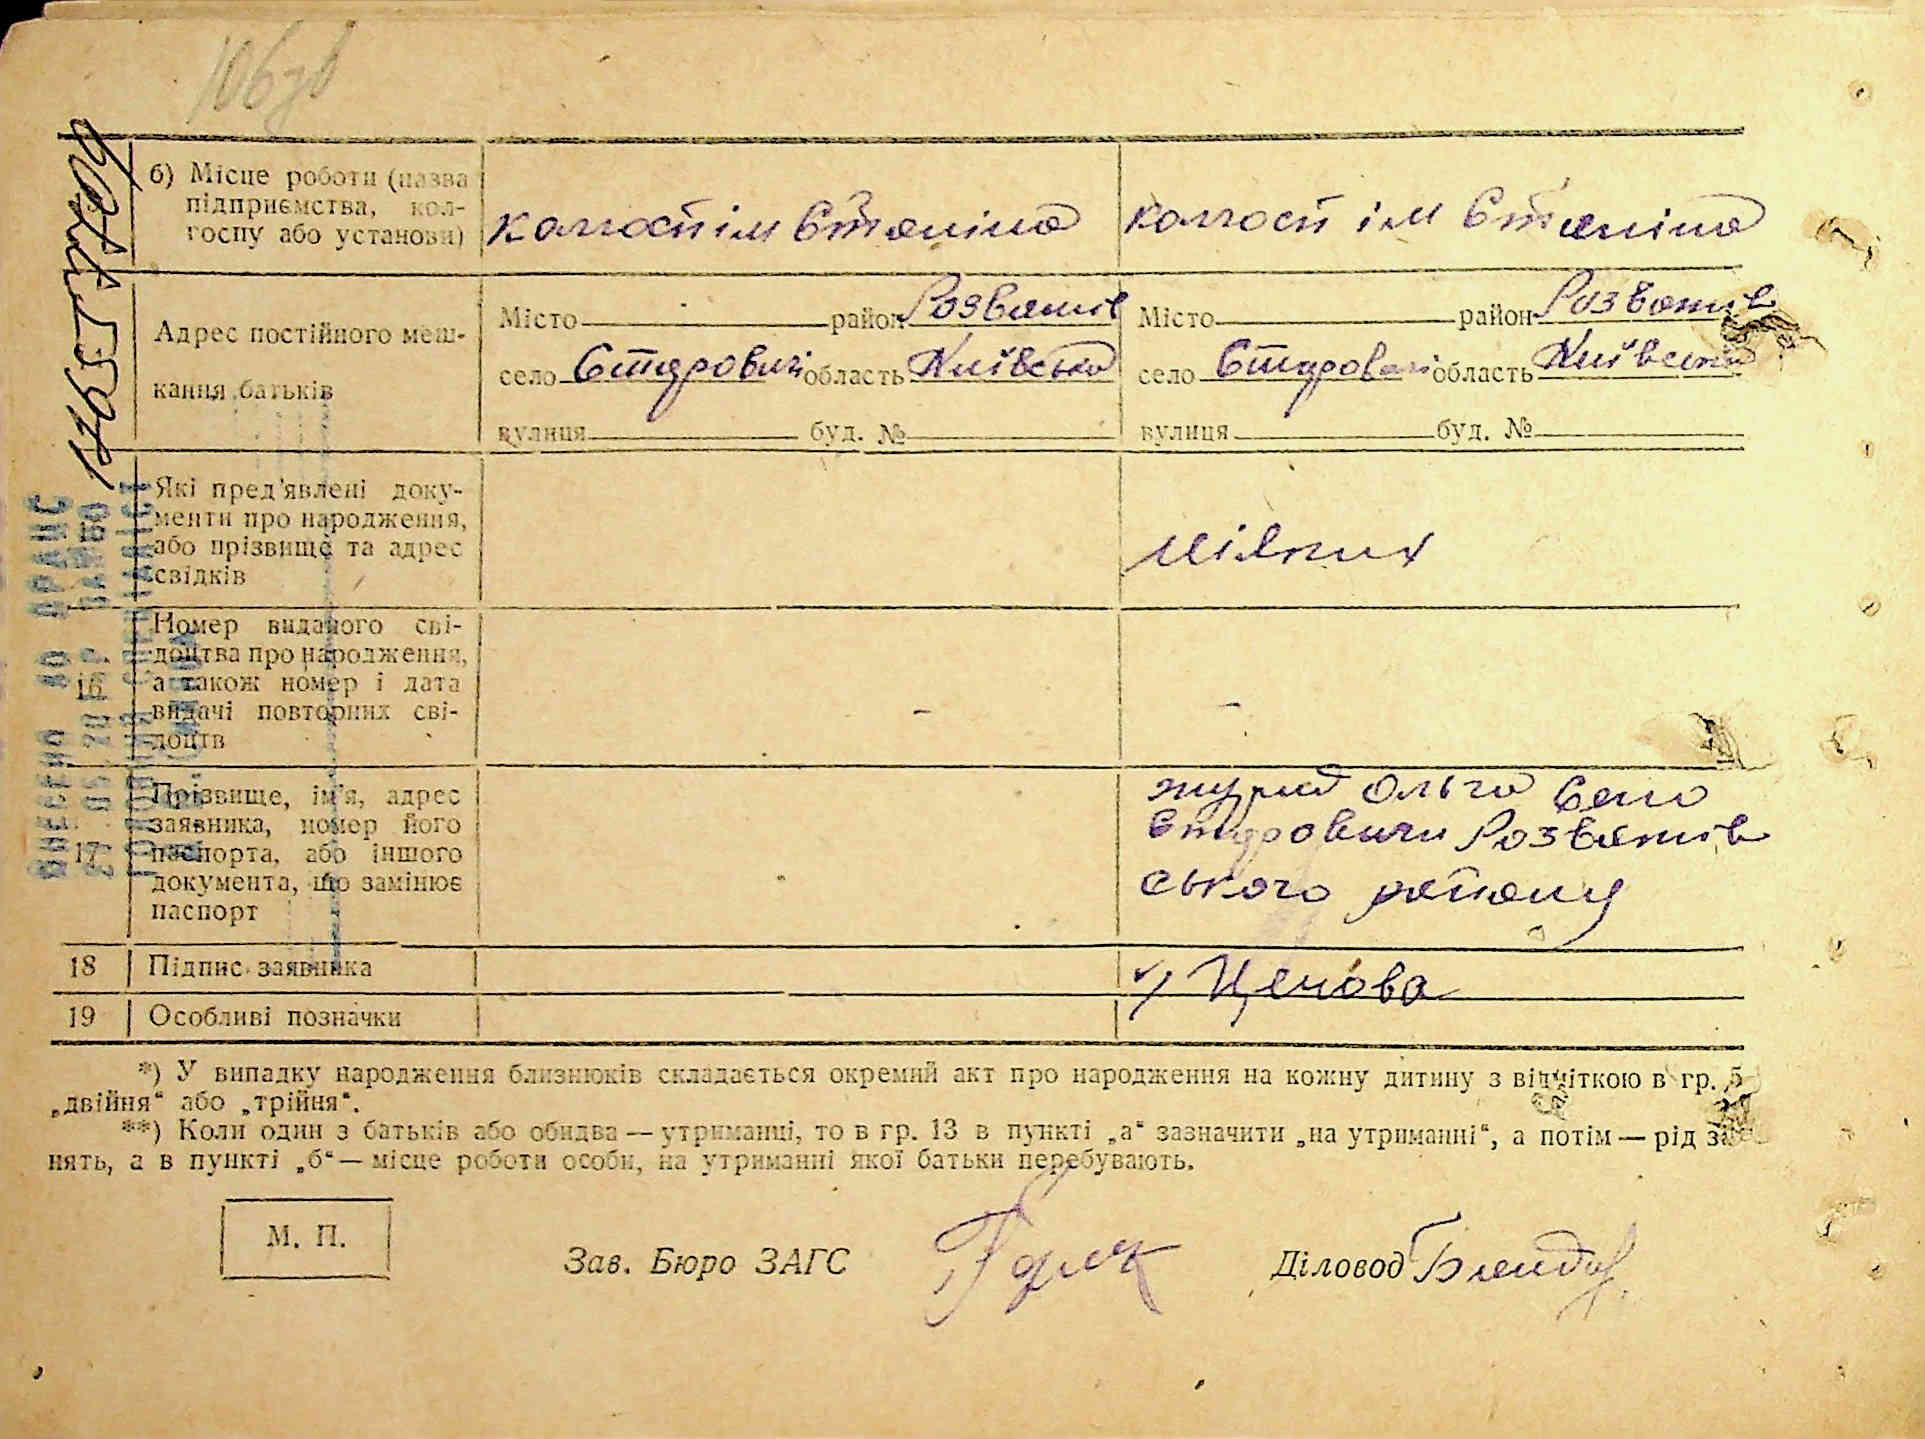 106зв
б) Місце роботи (назва
підприємства, кол-
госпу або установи)
колгосп ім Сталіна
колгосп ім Сталіна
Адрес постійного меш-
кання батьків
Місто район Розважів
село Старовичі область Київська
вулиця буд. №
Місто район Розважів
село Старовичі область Київська
вулиця буд. №
Які пред'явлені доку-
менти про народження,
або прізвище та адрес
свідків
16 Номер виданого сві-
доцтва про народження,
а також номер і дата
видачі повторних сві-
доцтв
17 Прізвище, ім'я, адрес
заявника, номер його
паспорта, або іншого
документа, що замінює
паспорт
Ольга Село
Старовичи Розважів
ського району
18 Підпис заявника
19 Особливі позначки
ВНЕСЕНО ДО ДРАЦС
*) У випадку народження близнюків складається окремий акт про народження на кожну дитину з відміткою в гр. 5
„двійня“ або „трійня“.
**) Коли один з батьків або обидва — утриманці, то в гр. 13 в пункті „а“ зазначити „на утриманні“, а потім — рід за-
нять, а в пункті „б“ — місце роботи особи, на утриманні якої батьки перебувають.
М. П.
Зав. Бюро ЗАГС
Діловод